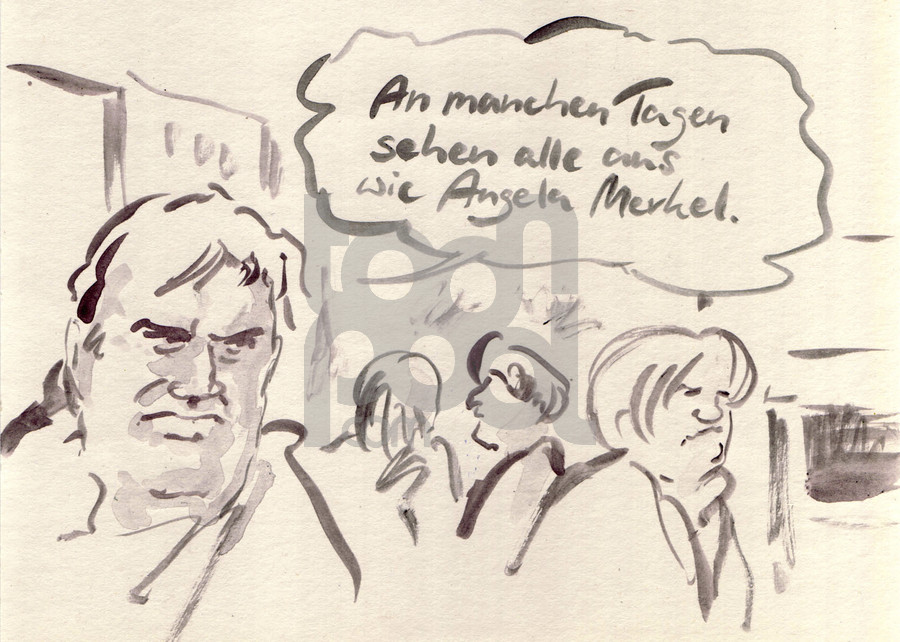 An manchen Tagen
sehen alle aus
wie Angela Merkel.
toon
pool
.com